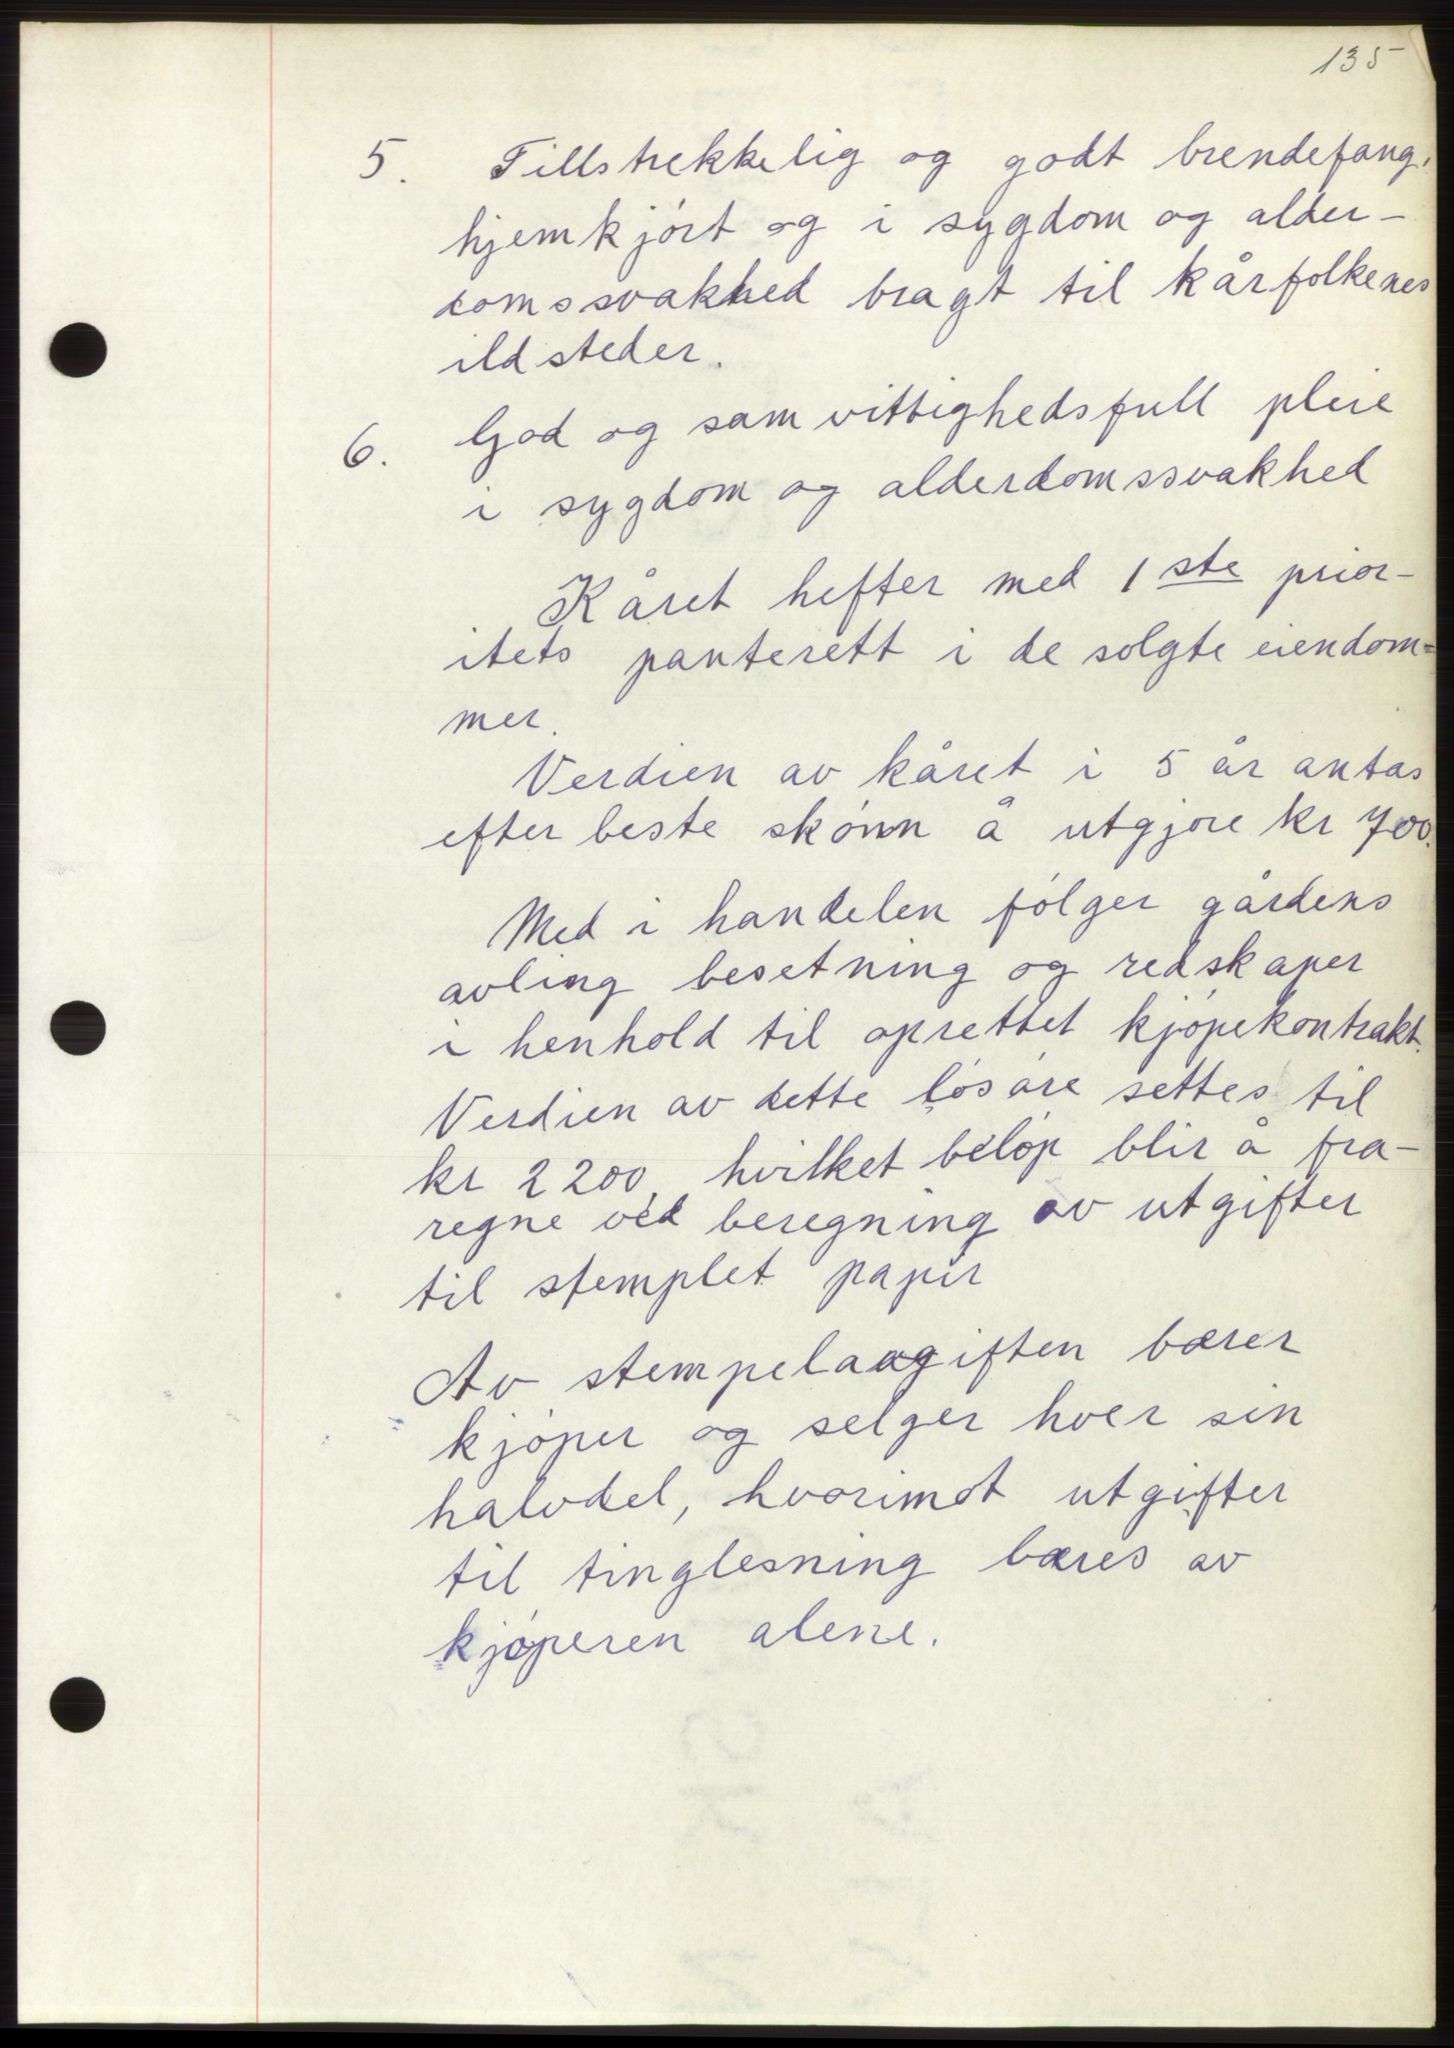 135
5. Tillstrekkelig og godt brendefang,
hjemkjórt og i sygdom og alder-
domssvakhed bragt til kårfolkenes
ildsteder.
6. God og samvittighedsfull pleie
i sygdom og alderdomssvakhed
Kåret hefter med 1 ste prior-
itets panterett i de solgte eiendom=
mer.
Verdien av kåret i 5 år antas
efter beste skónn å utgjore kr 700.
Med i handelen fólger gårdens
avling besetning og redskaper
i henhold til oprettet kjópekontrakt.
Verdien av dette lósóre settes til
kr 2200, hvilket belóp blir å fra-
regne ved beregning av utgifter
til stemplet papir
Av stempelavgiften bærer
kjóper og selger hver sin
halvdel, hvorimot utgifter
til tinglesning bæres av
kjóperen alene.